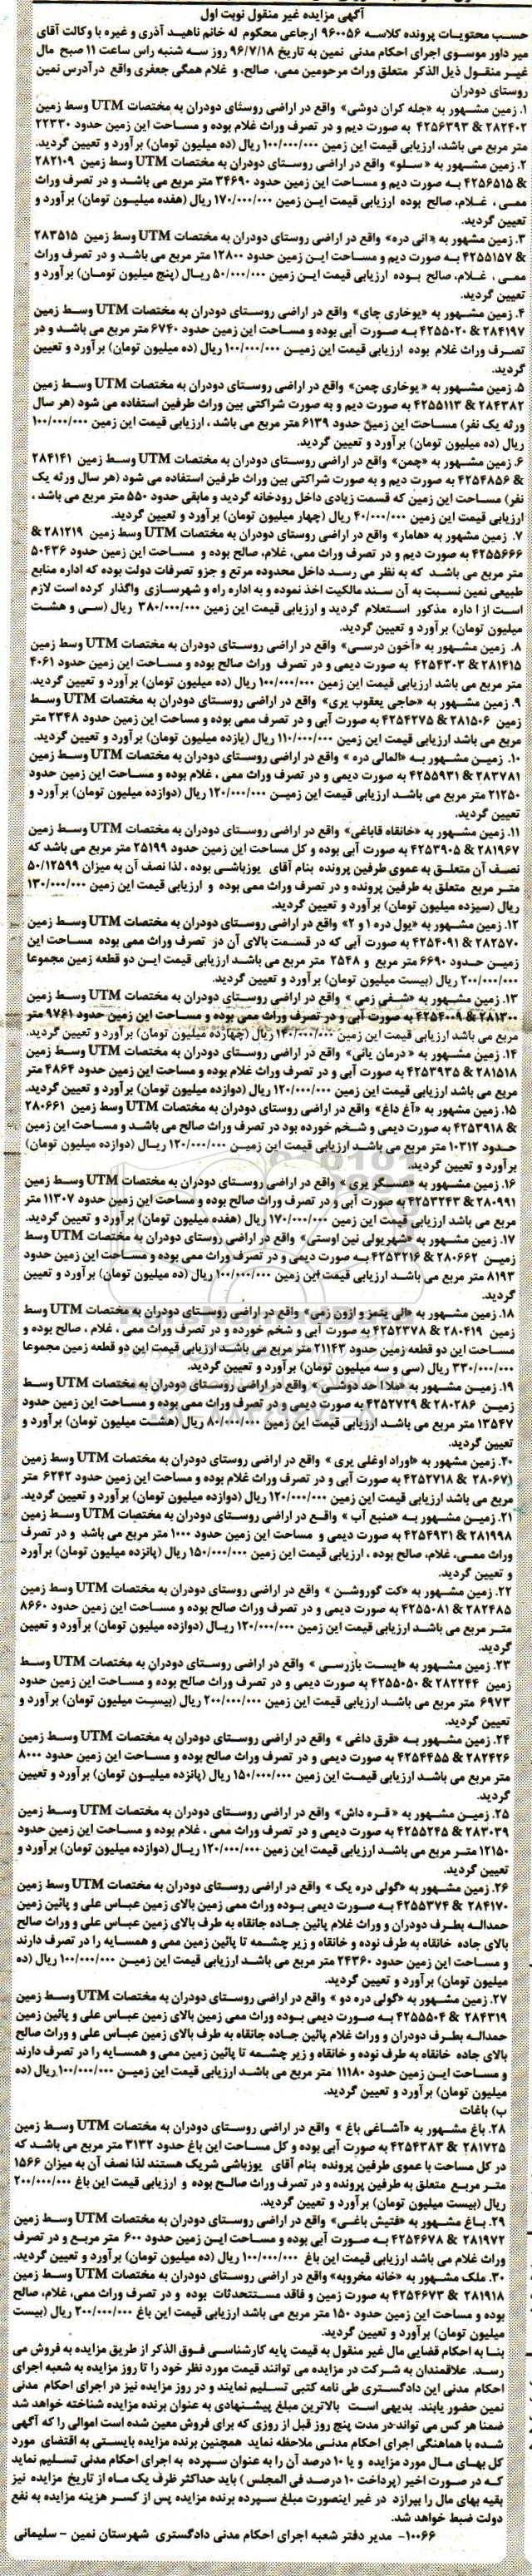 آگهی مزایده غیر منقول نوبت اول
حسب محتویات پرونده کلاسه ۹۶۰۰۵۶ ارجاعی محکوم له خانم ناهید آذری و غیره با وکالت آقای
میر داور موسوی اجرای احکام مدنی نمین به تاریخ ۹۶/۷/۱۸ روز سه شنبه راس ساعت ۱۱ صبح مال
غیر منقول ذیل الذکر متعلق وراث مرحومین ممی، صالح، و غلام همگی جعفری واقع درآدرس نمین
روستای دودران
۱. زمین مشهور به «جله کران دوشی» واقع در اراضی روستای دودران به مختصات UTM وسط زمین
۲۸۲۴۰۲ & ۴۲۵۶۳۹۳ به صورت دیم و در تصرف وراث غلام بوده و مساحت این زمین حدود ۲۲۳۳۰
متر مربع می باشد، ارزیابی قیمت این زمین ۱۰۰/۰۰۰/۰۰۰ ریال (ده میلیون تومان) برآورد و تعیین گردید.
۲. زمین مشهور به « سلو» واقع در اراضی روستای دودران به مختصات UTM وسط زمین ۲۸۲۱۰۹
& ۴۲۵۶۵۱۵ به صورت دیم و مساحت این زمین حدود ۳۴۶۹۰ متر مربع می باشد و در تصرف وراث
ممی ، غلام، صالح بوده ارزیابی قیمت این زمین ۱۷۰/۰۰۰/۰۰۰ ریال (هفده میلیون تومان) برآورد و
تعیین گردید.
۳. زمین مشهور به «انی دره» واقع در اراضی روستای دودران به مختصات UTM وسط زمین ۲۸۳۵۱۵
& ۴۲۵۵۱۵۷ به صورت دیم و مساحت این زمین حدود ۱۲۸۰۰ متر مربع می باشد و در تصرف وراث
ممی ، غلام، صالح بوده ارزیابی قیمت این زمین ۵۰/۰۰۰/۰۰۰ ریال (پنج میلیون تومان) برآورد و
تعیین گردید.
۴. زمین مشهور به «یوخاری چای» واقع در اراضی روستای دودران به مختصات UTM وسط زمین
۲۸۴۱۹۷ & ۴۲۵۵۰۲۰ به صورت آبی بوده و مساحت این زمین حدود ۶۷۴۰ متر مربع می باشد و در
تصرف وراث غلام بوده ارزیابی قیمت این زمین ۱۰۰/۰۰۰/۰۰۰ ریال (ده میلیون تومان) برآورد و تعیین
گردید.
۵. زمین مشهور به « یوخاری چمن» واقع در اراضی روستای دودران به مختصات UTM وسط زمین
۲۸۴۳۸۲ & ۴۲۵۵۱۱۳ به صورت دیم و به صورت شراکتی بین وراث طرفین استفاده می شود (هر سال
ورثه یک نفر) مساحت این زمین حدود ۶۱۳۹ متر مربع می باشد ، ارزیابی قیمت این زمین ۱۰۰/۰۰۰/۰۰۰
ریال (ده میلیون تومان) برآورد و تعیین گردید.
۶. زمین مشهور به «چمن» واقع در اراضی روستای دودران به مختصات UTM وسط زمین ۲۸۴۱۴۱
& ۴۲۵۴۸۵۶ به صورت دیم و به صورت شراکتی بین وراث طرفین استفاده می شود (هر سال ورثه یک
نفر) مساحت این زمین که قسمت زیادی داخل رودخانه گردید و مابقی حدود ۵۵۰ متر مربع می باشد ،
ارزیابی قیمت این زمین ۴۰/۰۰۰/۰۰۰ ریال (چهار میلیون تومان) برآورد و تعیین گردید.
۷. زمین مشهور به «هامار» واقع در اراضی روستای دودران به مختصات UTM وسط زمین ۲۸۱۲۱۹ &
۴۲۵۵۶۶۶ به صورت دیم و در تصرف وراث ممی، غلام، صالح بوده و مساحت این زمین حدود ۵۰۴۳۶
متر مربع می باشد که به نظر می رسد داخل محدوده مرتع و جزو تصرفات دولت بوده که اداره منابع
طبیعی نمین نسبت به آن سند مالکیت اخذ نموده و به اداره راه و شهرسازی واگذار کرده است لازم
است از اداره مذکور استعلام گردید و ارزیابی قیمت این زمین ۳۸۰/۰۰۰/۰۰۰ ریال (سی و هشت
میلیون تومان) برآورد و تعیین گردید.
۸. زمین مشهور به «آخون درسی» واقع در اراضی روستای دودران به مختصات UTM وسط زمین
۲۸۱۴۱۵ & ۴۲۵۴۳۰۳ به صورت دیمی و در تصرف وراث صالح بوده و مساحت این زمین حدود ۴۰۶۱
متر مربع می باشد ارزیابی قیمت این زمین ۱۰۰/۰۰۰/۰۰۰ ریال (ده میلیون تومان) برآورد و تعیین گردید.
۹. زمین مشهور به «حاجی یعقوب یری» واقع در اراضی روستای دودران به مختصات UTM وسط
زمین ۲۸۱۵۰۶ & ۴۲۵۴۲۷۵ به صورت آبی و در تصرف ممی بوده و مساحت این زمین حدود ۲۳۴۸ متر
مربع می باشد ارزیابی قیمت این زمین ۱۱۰/۰۰۰/۰۰۰ ریال (یازده میلیون تومان) برآورد و تعیین گردید.
۱۰. زمین مشهور به «المالی دره » واقع در اراضی روستای دودران به مختصات UTM وسط زمین
۲۸۳۷۸۱ & ۴۲۵۵۹۳۱ به صورت دیمی و در تصرف وراث ممی ، غلام بوده و مساحت این زمین حدود
۲۱۲۵۰ متر مربع می باشد ارزیابی قیمت این زمین ۱۲۰/۰۰۰/۰۰۰ ریال (دوازده میلیون تومان) برآورد و
تعیین گردید.
۱۱. زمین مشهور به «خانقاه قاباغی» واقع در اراضی روستای دودران به مختصات UTM وسط زمین
۲۸۱۹۶۷ & ۴۲۵۳۹۰۵ به صورت آبی بوده و کل مساحت این زمین حدود ۲۵۱۹۹ متر مربع می باشد که
نصف آن متعلق به عموی طرفین پرونده بنام آقای یوزباشی بوده ، لذا نصف آن به میزان ۵۰/۱۲۵۹۹
متر مربع متعلق به طرفین پرونده و در تصرف وراث ممی بوده و ارزیابی قیمت این زمین ۱۳۰/۰۰۰/۰۰۰
ریال (سیزده میلیون تومان) برآورد و تعیین گردید.
۱۲. زمین مشهور به «یول دره ۱ و ۲» واقع در اراضی روستای دودران به مختصات UTM وسط زمین
۲۸۲۵۷۰ & ۴۲۵۴۰۹۱ به صورت آبی که در قسمت بالای آن در تصرف وراث ممی بوده مساحت این
زمین حدود ۶۶۹۰ متر مربع و ۲۵۴۸ متر مربع می باشد ارزیابی قیمت این دو قطعه زمین مجموعا
۲۰۰/۰۰۰/۰۰۰ ریال (بیست میلیون تومان) برآورد و تعیین گردید.
۱۳. زمین مشهور به «شفی زمی » واقع در اراضی روستای دودران به مختصات UTM وسط زمین
۲۸۱۳۰۰ & ۴۲۵۴۰۰۹ به صورت آبی و در تصرف وراث ممی بوده و مساحت این زمین حدود ۹۷۶۱ متر
مربع می باشد ارزیابی قیمت این زمین ۱۴۰/۰۰۰/۰۰۰ ریال (چهارده میلیون تومان) برآورد و تعیین گردید.
۱۴. زمین مشهور به « درمان یانی» واقع در اراضی روستای دودران به مختصات UTM وسط زمین
۲۸۱۵۱۸ & ۴۲۵۳۹۳۵ به صورت آبی و در تصرف وراث غلام بوده و مساحت این زمین حدود ۴۸۶۴ متر
مربع می باشد ارزیابی قیمت این زمین ۱۲۰/۰۰۰/۰۰۰ ریال (دوازده میلیون تومان) برآورد و تعیین گردید.
۱۵. زمین مشهور به «آغ داغ» واقع در اراضی روستای دودران به مختصات UTM وسط زمین ۲۸۰۶۶۱
& ۴۲۵۳۹۱۸ به صورت دیمی و شخم خورده بود در تصرف وراث صالح می باشد و مساحت این زمین
حدود ۱۰۳۱۲ متر مربع می باشد ارزیابی قیمت این زمین ۱۲۰/۰۰۰/۰۰۰ ریال (دوازده میلیون تومان)
برآورد و تعیین گردید.
۱۶. زمین مشهور به «عسگر یری » واقع در اراضی روستای دودران به مختصات UTM وسط زمین
۲۸۰۹۹۱ & ۴۲۵۳۲۴۳ به صورت آبی و در تصرف وراث صالح بوده و مساحت این زمین حدود ۱۱۳۰۷ متر
مربع می باشد ارزیابی قیمت این زمین ۱۷۰/۰۰۰/۰۰۰ ریال (هفده میلیون تومان) برآورد و تعیین گردید.
۱۷. زمین مشهور به «شهریولی نین اوستی» واقع در اراضی روستای دودران به مختصات UTM وسط
زمین ۲۸۰۶۶۲ & ۴۲۵۳۲۱۶ به صورت دیمی و در تصرف وراث ممی بوده و مساحت این زمین حدود
۸۱۹۳ متر مربع می باشد ارزیابی قیمت این زمین ۱۰۰/۰۰۰/۰۰۰ ریال (ده میلیون تومان) برآورد و تعیین
گردید.
۱۸. زمین مشهور به «الی یتمز و ازون زمی» واقع در اراضی روستای دودران به مختصات UTM وسط
زمین ۲۸۰۴۱۹ & ۴۲۵۲۳۷۸ به صورت آبی و شخم خورده و در تصرف وراث ممی ، غلام ، صالح بوده و
مساحت این دو قطعه زمین حدود ۲۱۱۴۳ متر مربع می باشد ارزیابی قیمت این دو قطعه زمین مجموعا
۳۳۰/۰۰۰/۰۰۰ ریال (سی و سه میلیون تومان) برآورد و تعیین گردید.
۱۹. زمین مشهور به «ملا احد دوشی » واقع در اراضی روستای دودران به مختصات UTM وسط
زمین ۲۸۰۲۸۶ & ۴۲۵۲۷۲۹ به صورت دیمی و در تصرف وراث ممی بوده و مساحت این زمین حدود
۱۳۵۴۷ متر مربع می باشد ارزیابی قیمت این زمین ۸۰/۰۰۰/۰۰۰ ریال (هشت میلیون تومان) برآورد و
تعیین گردید.
۲۰. زمین مشهور به «اوراد اوغلی یری » واقع در اراضی روستای دودران به مختصات UTM وسط زمین
۲۸۰۶۷۱ & ۴۲۵۲۷۱۸ به صورت آبی و در تصرف وراث غلام بوده و مساحت این زمین حدود ۶۲۴۲ متر
مربع می باشد ارزیابی قیمت این زمین ۱۲۰/۰۰۰/۰۰۰ ریال (دوازده میلیون تومان) برآورد و تعیین گردید.
۲۱. زمین مشهور به «منبع آب » واقع در اراضی روستای دودران به مختصات UTM وسط زمین
۲۸۱۹۹۸ & ۴۲۵۴۹۳۱ به صورت دیمی و مساحت این زمین حدود ۱۰۰۰ متر مربع می باشد و در تصرف
وراث ممی، غلام، صالح بوده ، ارزیابی قیمت این زمین ۱۵۰/۰۰۰/۰۰۰ ریال (پانزده میلیون تومان) برآورد
و تعیین گردید.
۲۲. زمین مشهور به «کت گوروشن » واقع در اراضی روستای دودران به مختصات UTM وسط زمین
۲۸۲۴۸۵ & ۴۲۵۵۰۸۱ به صورت دیمی و در تصرف وراث صالح بوده و مساحت این زمین حدود ۸۶۶۰
متر مربع می باشد ارزیابی قیمت این زمین ۱۲۰/۰۰۰/۰۰۰ ریال (دوازده میلیون تومان) برآورد و تعیین
گردید.
۲۳. زمین مشهور به «ایست بازرسی » واقع در اراضی روستای دودران به مختصات UTM وسط
زمین ۲۸۲۲۴۴ & ۴۲۵۵۰۵۰ به صورت دیمی و در تصرف وراث صالح بوده و مساحت این زمین حدود
۶۹۷۳ متر مربع می باشد ارزیابی قیمت این زمین ۲۰۰/۰۰۰/۰۰۰ ریال (بیست میلیون تومان) برآورد و
تعیین گردید.
۲۴. زمین مشهور به «قرق داغی » واقع در اراضی روستای دودران به مختصات UTM وسط زمین
۲۸۲۴۲۶ & ۴۲۵۴۴۵۵ به صورت دیمی و در تصرف وراث صالح بوده و مساحت این زمین حدود ۸۰۰۰
متر مربع می باشد ارزیابی قیمت این زمین ۱۵۰/۰۰۰/۰۰۰ ریال (پانزده میلیون تومان) برآورد و تعیین
گردید.
۲۵. زمین مشهور به « قره داش» واقع در اراضی روستای دودران به مختصات UTM وسط زمین
۲۸۳۰۳۹ & ۴۲۵۵۲۴۵ به صورت دیمی و در تصرف وراث ممی ، غلام بوده و مساحت این زمین حدود
۱۲۱۵۰ متر مربع می باشد ارزیابی قیمت این زمین ۱۲۰/۰۰۰/۰۰۰ ریال (دوازده میلیون تومان) برآورد و
تعیین گردید.
۲۶. زمین مشهور به «گولی دره یک » واقع در اراضی روستای دودران به مختصات UTM وسط زمین
۲۸۴۱۷۰ & ۴۲۵۵۳۷۴ به صورت دیمی بوده وراث ممی زمین بالای زمین عباس علی و پائین زمین
حمداله بطرف دودران و وراث غلام پائین جاده جانقاه به طرف بالای زمین عباس علی و وراث صالح
بالای جاده خانقاه به طرف نوده و خانقاه و زیر چشمه تا پائین زمین ممی و همسایه را در تصرف دارند
و مساحت این زمین حدود ۲۴۳۶۰ متر مربع می باشد ارزیابی قیمت این زمین ۱۰۰/۰۰۰/۰۰۰ ریال (ده
میلیون تومان) برآورد و تعیین گردید.
۲۷. زمین مشهور به «گولی دره دو » واقع در اراضی روستای دودران به مختصات UTM وسط زمین
۲۸۴۳۱۹ & ۴۲۵۵۵۰۴ به صورت دیمی بوده وراث ممی زمین بالای زمین عباس علی و پائین زمین
حمداله بطرف دودران و وراث غلام پائین جاده جانقاه به طرف بالای زمین عباس علی و وراث صالح
بالای جاده خانقاه به طرف نوده و خانقاه و زیر چشمه تا پائین زمین ممی و همسایه را در تصرف دارند
و مساحت این زمین حدود ۱۱۱۸۰ متر مربع می باشد ارزیابی قیمت این زمین ۱۰۰/۰۰۰/۰۰۰ ریال (ده
میلیون تومان) برآورد و تعیین گردید.
ب) باغات
۲۸. باغ مشهور به «آشاغی باغ » واقع در اراضی روستای دودران به مختصات UTM وسط زمین
۲۸۱۷۲۵ & ۴۲۵۴۳۸۳ به صورت آبی بوده و کل مساحت این باغ حدود ۳۱۳۲ متر مربع می باشد که
در کل مساحت با عموی طرفین پرونده بنام آقای یوزباشی شریک هستند لذا نصف آن به میزان ۱۵۶۶
متر مربع متعلق به طرفین پرونده و در تصرف وراث صالح بوده و ارزیابی قیمت این باغ ۲۰۰/۰۰۰/۰۰۰
ریال (بیست میلیون تومان) برآورد و تعیین گردید.
۲۹. باغ مشهور به «فتیش باغی» واقع در اراضی روستای دودران به مختصات UTM وسط زمین
۲۸۱۹۷۲ & ۴۲۵۴۶۷۸ به صورت آبی بوده و مساحت این زمین حدود ۶۰۰ متر مربع و در تصرف
وراث غلام می باشد ارزیابی قیمت این باغ ۱۰۰/۰۰۰/۰۰۰ ریال (ده میلیون تومان) برآورد و تعیین گردید.
۳۰. ملک مشهور به «خانه مخروبه» واقع در اراضی روستای دودران به مختصات UTM وسط زمین
۲۸۱۹۱۸ & ۴۲۵۴۶۷۳ به صورت زمین و فاقد مستحدثات بوده و در تصرف وراث ممی، غلام، صالح
بوده و مساحت این زمین حدود ۱۵۰ متر مربع می باشد ارزیابی قیمت این باغ ۲۰۰/۰۰۰/۰۰۰ ریال (بیست
میلیون تومان) برآورد و تعیین گردید.
بنا به احکام قضایی مال غیر منقول به قیمت پایه کارشناسی فوق الذکر از طریق مزایده به فروش می
رسد. علاقمندان به شرکت در مزایده می توانند قیمت مورد نظر خود را تا روز مزایده به شعبه اجرای
احکام مدنی این دادگستری طی نامه کتبی تسلیم نمایند و در روز مزایده نیز در اجرای احکام مدنی
نمین حضور یابند. بدیهی است بالاترین مبلغ پیشنهادی به عنوان برنده مزایده شناخته خواهد شد
ضمنا هر کس می تواند در مدت پنج روز قبل از روزی که برای فروش معین شده است اموالی را که آگهی
شده با هماهنگی اجرای احکام مدنی ملاحظه نماید همچنین برنده مزایده بایستی به اقتضای مورد
کل بهای مال مورد مزایده و یا ۱۰ درصد آن را به عنوان سپرده به اجرای احکام مدنی تسلیم نماید
که در صورت اخیر (پرداخت ۱۰ درصد فی المجلس) باید حداکثر ظرف یک ماه از تاریخ مزایده نیز
بقیه بهای مال را بپرازد در غیر اینصورت مبلغ سپرده برنده مزایده پس از کسر هزینه مزایده به نفع
دولت ضبط خواهد شد.
۱۰۰۶۶- مدیر دفتر شعبه اجرای احکام مدنی دادگستری شهرستان نمین - سلیمانی